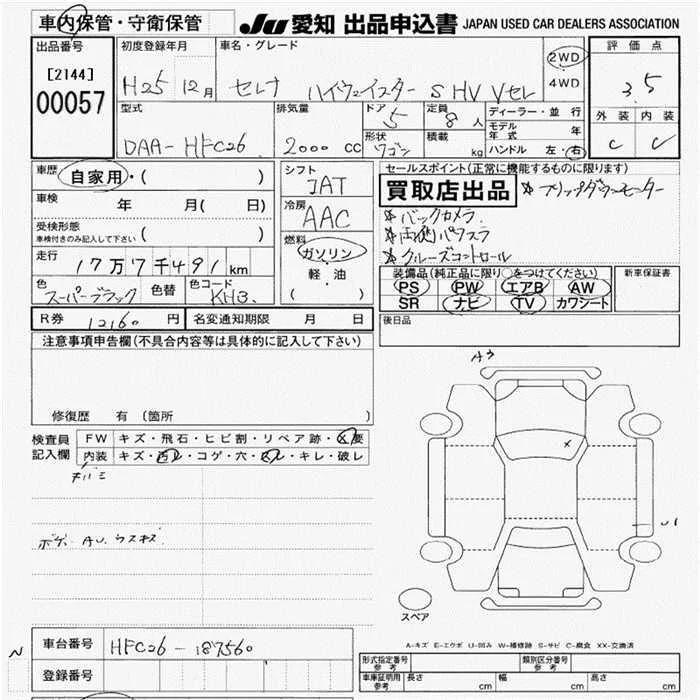 車内保管・守衛保管
JU 愛知 出品申込書 JAPAN USED CAR DEALERS ASSOCIATION
出品番号
[2144]
00057
初度登録年月
H25 12月
車名・グレード
セレナ ハイウェイスター S HV Vセレ
2WD
4WD
評価点
3.5
外装 内装
C C
型式
DAA-HFC26
排気量
2000 CC
ドア
5
形状
ワゴン
定員
8人
積載
kg
ディーラー・並行
モデル年式 年
ハンドル 左・右
車歴
自家用・( )
車検 年 月( 日)
受検形態
車検付きのみ記入して下さい ( )
走行
17万7千491km
色
スーパーブラック
色替
色コード
KH3
シフト
IAT
冷房
AAC
燃料
ガソリン
軽・油
( )
セールスポイント(正常に機能するものに限ります)
買取店出品 ※フリップダウンモーター
※バックカメラ
※両側パワスラ
※クルーズコントロール
装備品(純正品に限り○をつけてください)
PS PW エアB AW
SR ナビ TV カワシート
新車保証書
R券 12160円 名変通知期限 月 日
後日品
注意事項申告欄(不具合内容等は具体的に記入して下さい)
修復歴 有 〔箇所 〕
検査員記入欄
FW キズ・飛石・ヒビ割・リペア跡・X要
内装 キズ・汚レ・コゲ・穴・スレ・キレ・破レ
ボデー AU.ウスキズ
A3
X
U1
スペア
A-キズ E-エクボ U-凹み W-補修跡 S-サビ C-腐食 XX-交換済
N
車台番号 HFC26-187560
登録番号
形式指定番号 参考
類別区分番号 参考
車庫証明用 参考 長さ cm 幅 cm 高さ cm